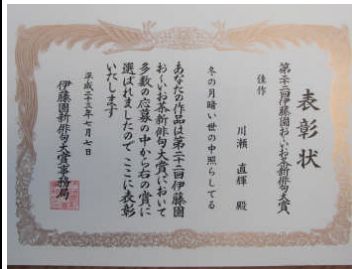 表彰状
第二十二回伊藤園おーいお茶新俳句大賞
佳作
川瀬 直輝 殿
冬の月暗い世の中照らしてる
あなたの作品は第二十二回伊藤園
おーいお茶新俳句大賞において
多数の応募の中から右の賞に
選ばれましたのでここに表彰
いたします
平成二十三年七月七日
伊藤園新俳句大賞事務局